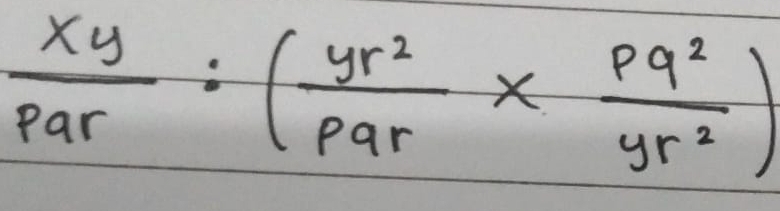 xy/pqr : (yr²/pqr × pq²/yr²)